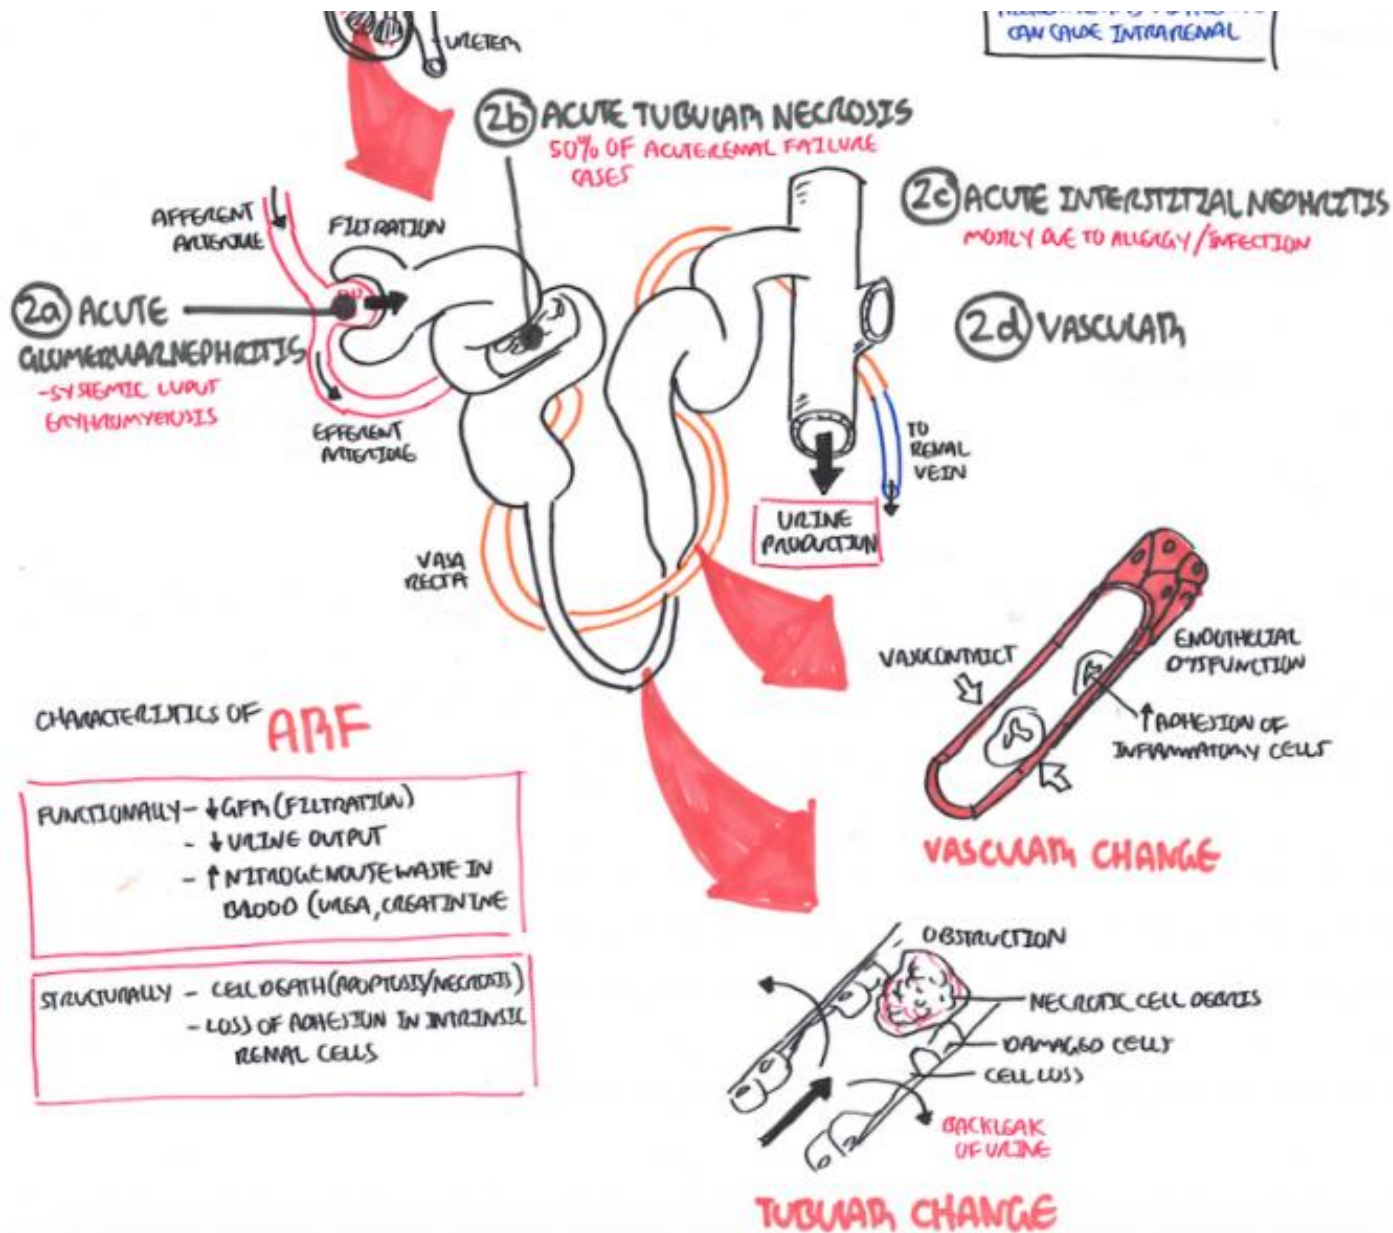 URETER
CAN CAUSE INTRARENAL
2b ACUTE TUBULAR NECROSIS
50% OF ACUTE RENAL FAILURE
CASES
2c ACUTE INTERSTITIAL NEPHRITIS
MOSTLY DUE TO ALLERGY/INFECTION
2d VASCULAR
AFFERENT
ARTERIOLE
FILTRATION
2a ACUTE
GLOMERULARNEPHRITIS
-SYSTEMIC LUPUT
EFFERENT
ARTERIOLE
TO
RENAL
VEIN
URINE
PRODUCTION
VASA
RECTA
VASOCONTRICT
ENDOTHELIAL
DYSFUNCTION
↑ADHESION OF
INFLAMMATORY CELLS
VASCULAR CHANGE
CHARACTERISTICS OF ARF
FUNCTIONALLY - ↓GFR (FILTRATION)
- ↓URINE OUTPUT
- ↑NITROGENOUSE WASTE IN
BLOOD (UREA, CREATININE
STRUCTURALLY - CELL DEATH (APOPTOSIS/NECROSIS)
- LOSS OF ADHESION IN INTRINSIC
RENAL CELLS
OBSTRUCTION
NECROTIC CELL DEBRIS
DAMAGED CELLS
CELL LOSS
BACKLEAK
OF URINE
TUBULAR CHANGE